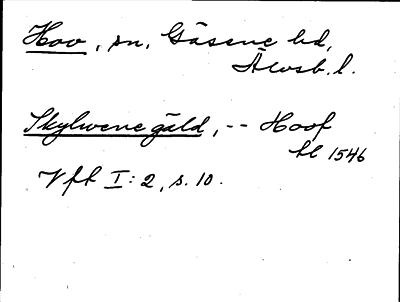 Hov, sn, Gäsene hd,
Älvsb. l.
Skylwene gäld, -- Hoof
hl 1546
Vfl I: 2, s. 10.